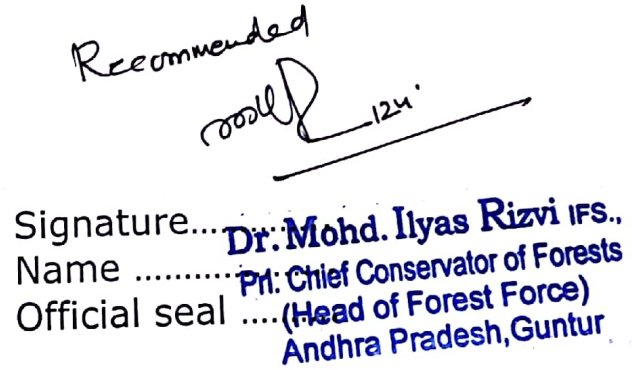 Recommended
Signature.......... Dr. Mohd. Ilyas Rizvi IFS.,
Name .......... Prl. Chief Conservator of Forests
Official seal ....(Head of Forest Force)
Andhra Pradesh,Guntur